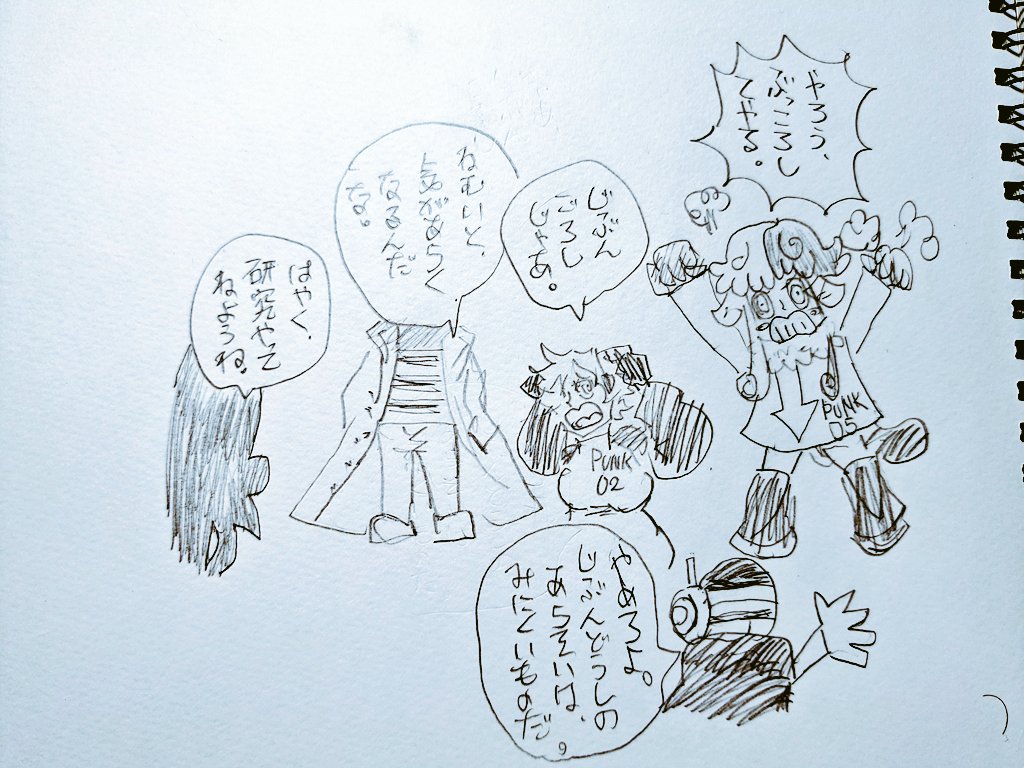 やろう、
ぶっころし
てやる。
じぶん
ごろし
じゃあ。
ねむいと、
気があらく
なるんだ
な。
はやく、
研究やて
ねようね。
PUNK
02
PUNK
05
やめろよ。
じぶんどうしの
あらそいは、
みにくいものだ
。